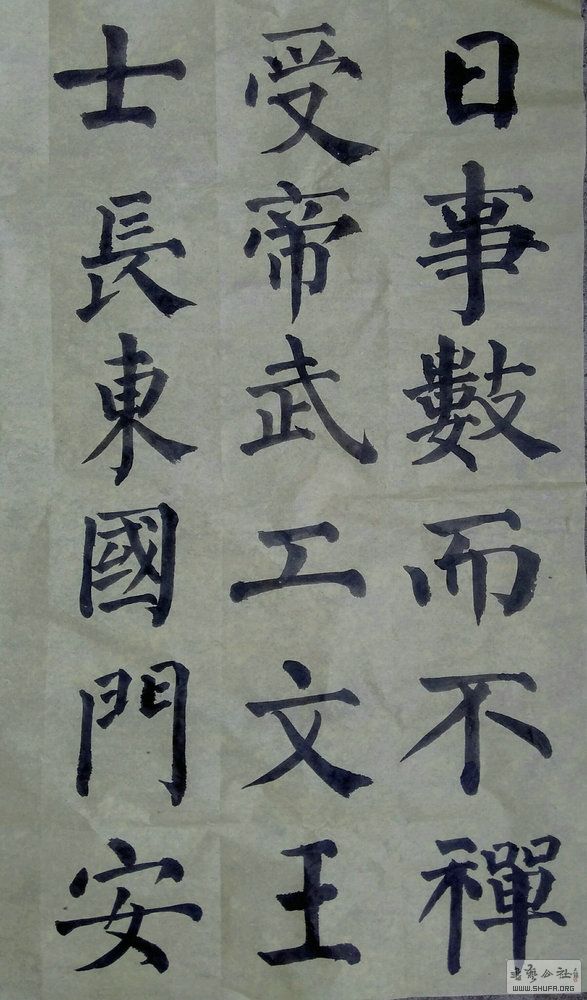 日事數而不禪
受帝武工文王
士長東國門安
書藝公社
WWW.SHUFA.ORG